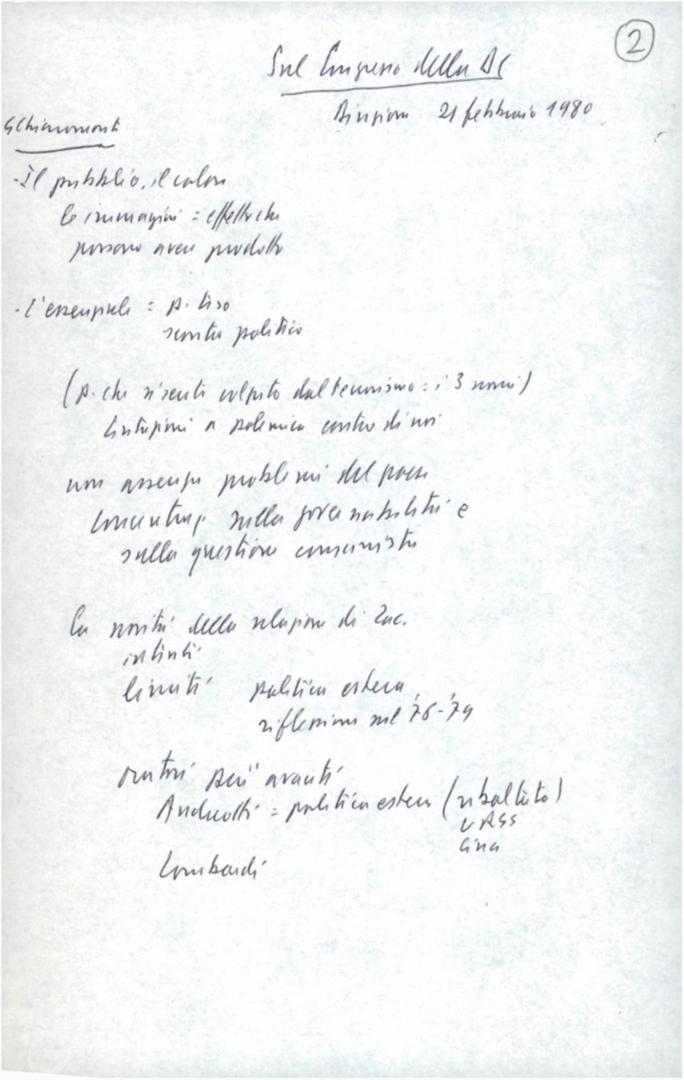 2
Sul Congresso della DC
Direzione 21 febbraio 1980
G. Chiaromonte
- Il pubblico, il calore
le immagini = effetto che
possono aver prodotto
- L'essenziale =
scontro politico
(p. che si senti colpito dal terrorismo = i 3 nomi)
limitazioni a polemica contro di noi
non assenza problemi del paese
concentraz. sulla governabilità e
sulla questione comunista
la novità della relazione di Zac.
limiti politica estera
riflessione sul '76-'79
oratori più avanti
Andreotti = politica estera (ribaltato)
URSS
Cina
Lombardi